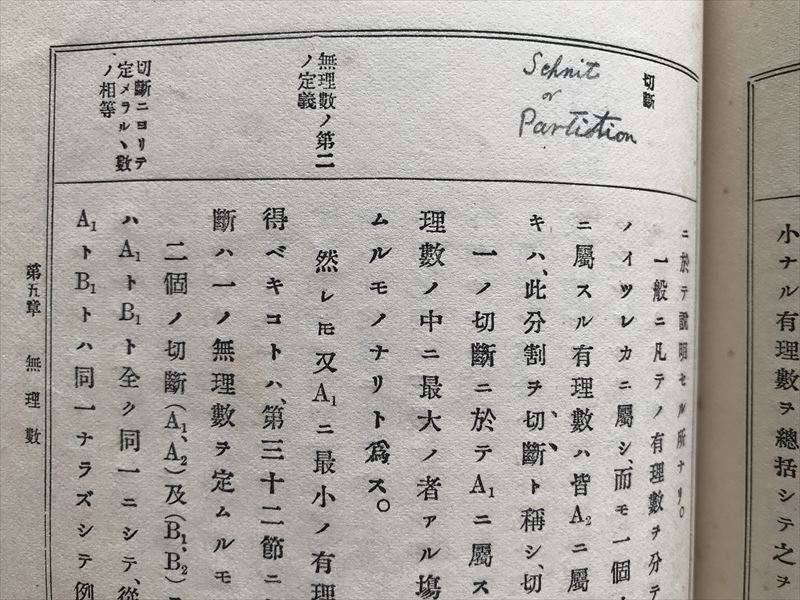 切斷
Schnit
or
Partition
無理數ノ第二
ノ定義
切斷ニヨリテ
定メラルヽ數
ノ相等
ニ於テ說明セル所ナリ。
一般ニ凡テノ有理數ヲ分テ
ノイヅレカニ屬シ、而モ一個
ニ屬スル有理數ハ皆A₂ニ屬
キハ、此分割ヲ切斷ト稱シ、切
一ノ切斷ニ於テA₁ニ屬ス
理數ノ中ニ最大ノ者アル塲
ムルモノナリト爲ス。
然レ𪜈又A₁ニ最小ノ有理
得ベキコトハ、第三十二節ニ
斷ハ一ノ無理數ヲ定ムルモ
二個ノ切斷(A₁、A₂)及(B₁、B₂)
ハA₁トB₁ト全ク同一ニシテ、從
A₁トB₁トハ同一ナラズシテ例
第五章 無理數
小ナル有理數ヲ總括シテ之ヲ